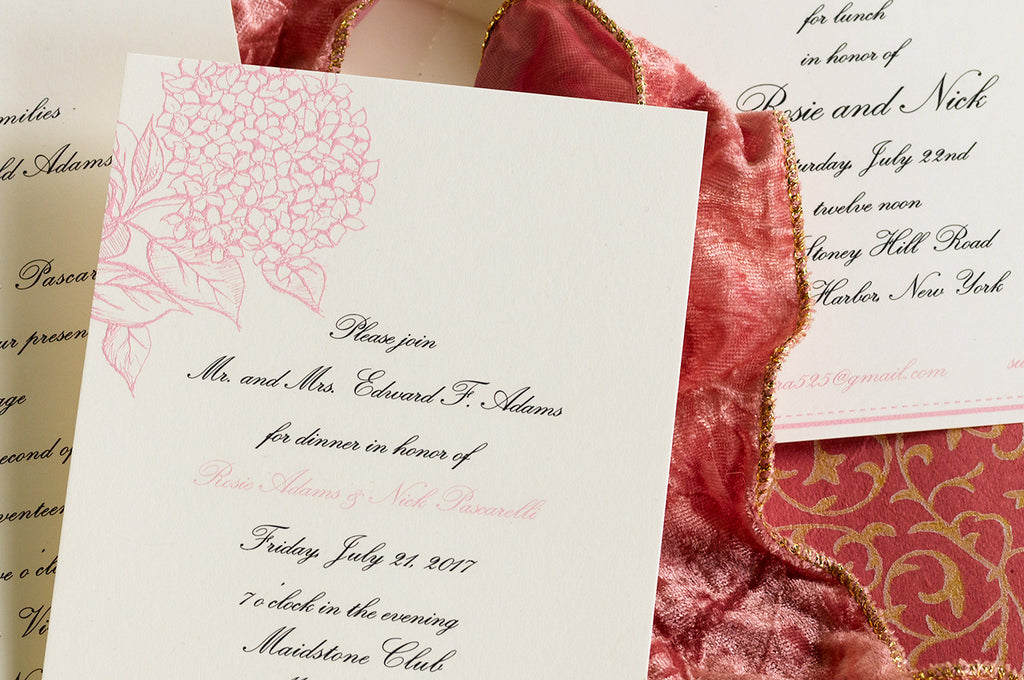 Please join
Mr. and Mrs. Edward F. Adams
for dinner in honor of
Rosie Adams & Nick Pascarelli
Friday, July 21, 2017
7 o'clock in the evening
Maidstone Club
for lunch
in honor of
Rosie and Nick
July 22nd
twelve noon
Stoney Hill Road
Harbor, New York
525@gmail.com
Adams